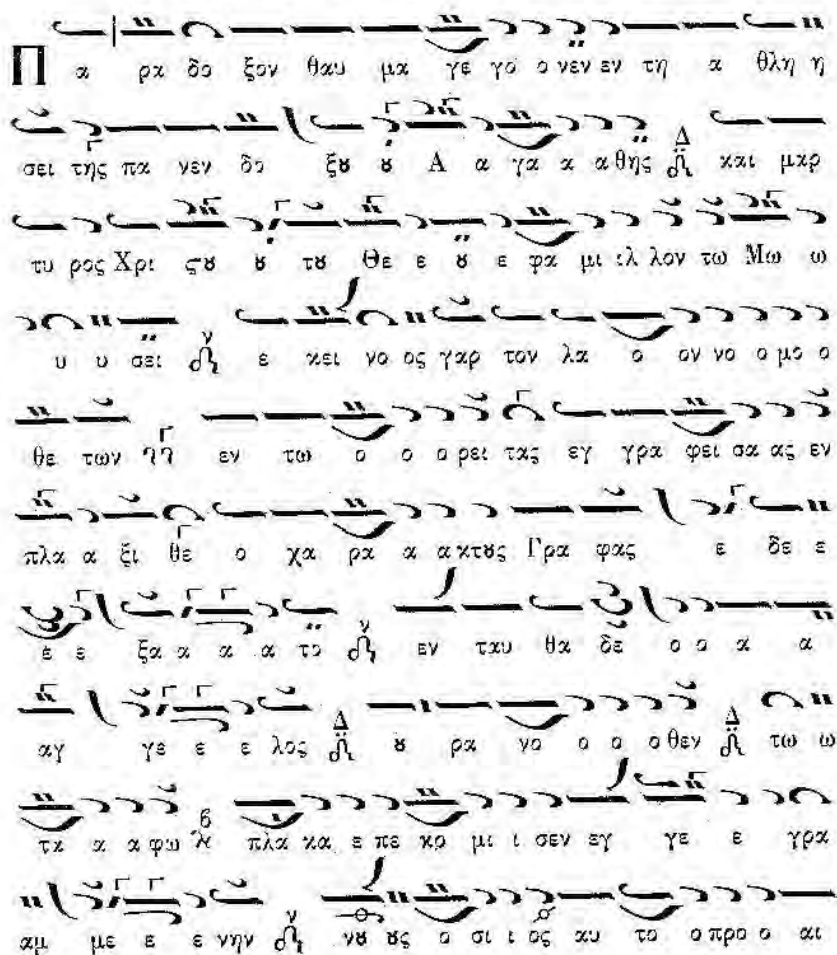 Πα ρα δο ξον θαυ μα γε γο ο νεν εν τη α θλη η
σει της πα νεν δο ξȣ ȣ Α α γα α α θης Δ και μαρ
τυ ρος Χρι ϛȣ ȣ τȣ Θε ε ȣ ε φα μι ιλ λον τω Μω ω
υ υ σει ν ε κει νο ος γαρ τον λα ο ον νο ο μο ο
θε των Γ εν τω ο ο ο ρει τας εγ γρα φει σα ας εν
πλα α ξι θε ο χα ρα α α κτȣς Γρα φας ε δε ε
ε ε ξα α α α το ν εν ταυ θα δε ο ο α α
αγ γε ε ε λος Δ ȣ ρα νο ο ο ο θεν Δ τω ω
τα α α φω β πλα κα ε πε κο μι ι σεν εγ γε ε γρα
αμ με ε ε νην ν νȣ ȣς ο σι ι ος αυ το ο προ ο αι